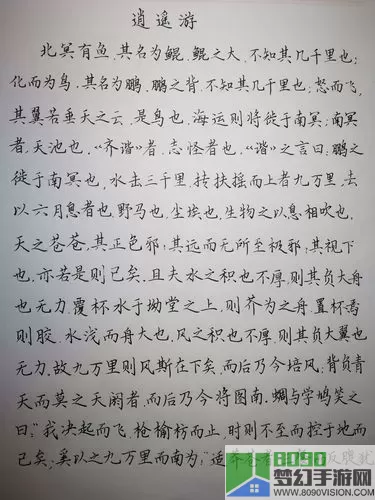 逍遥游
北冥有鱼,其名为鲲,鲲之大,不知其几千里也;
化而为鸟,其名为鹏,鹏之背,不知其几千里也;怒而飞,
其翼若垂天之云,是鸟也,海运则将徙于南冥;南冥
者,天池也,《齐谐》者,志怪者也,《谐》之言曰:鹏之
徙于南冥也,水击三千里,抟扶摇而上者九万里,去
以六月息者也,野马也,尘埃也,生物之以息相吹也,
天之苍苍,其正色邪;其远而无所至极邪;其视下
也,亦若是则已矣,且夫水之积也不厚,则其负大舟
也无力,覆杯水于坳堂之上,则芥为之舟,置杯焉
则胶,水浅而舟大也,风之积也不厚,则其负大翼也
无力,故九万里则风斯在下矣,而后乃今培风,背负青
天而莫之夭阏者,而后乃今将图南,蜩与学鸠笑之
曰:"我决起而飞,枪榆枋而止,时则不至而控于地而
已矣;奚以之九万里而南为;"适莽苍者
8090
梦幻手游网
WWW.8090VISION.COM